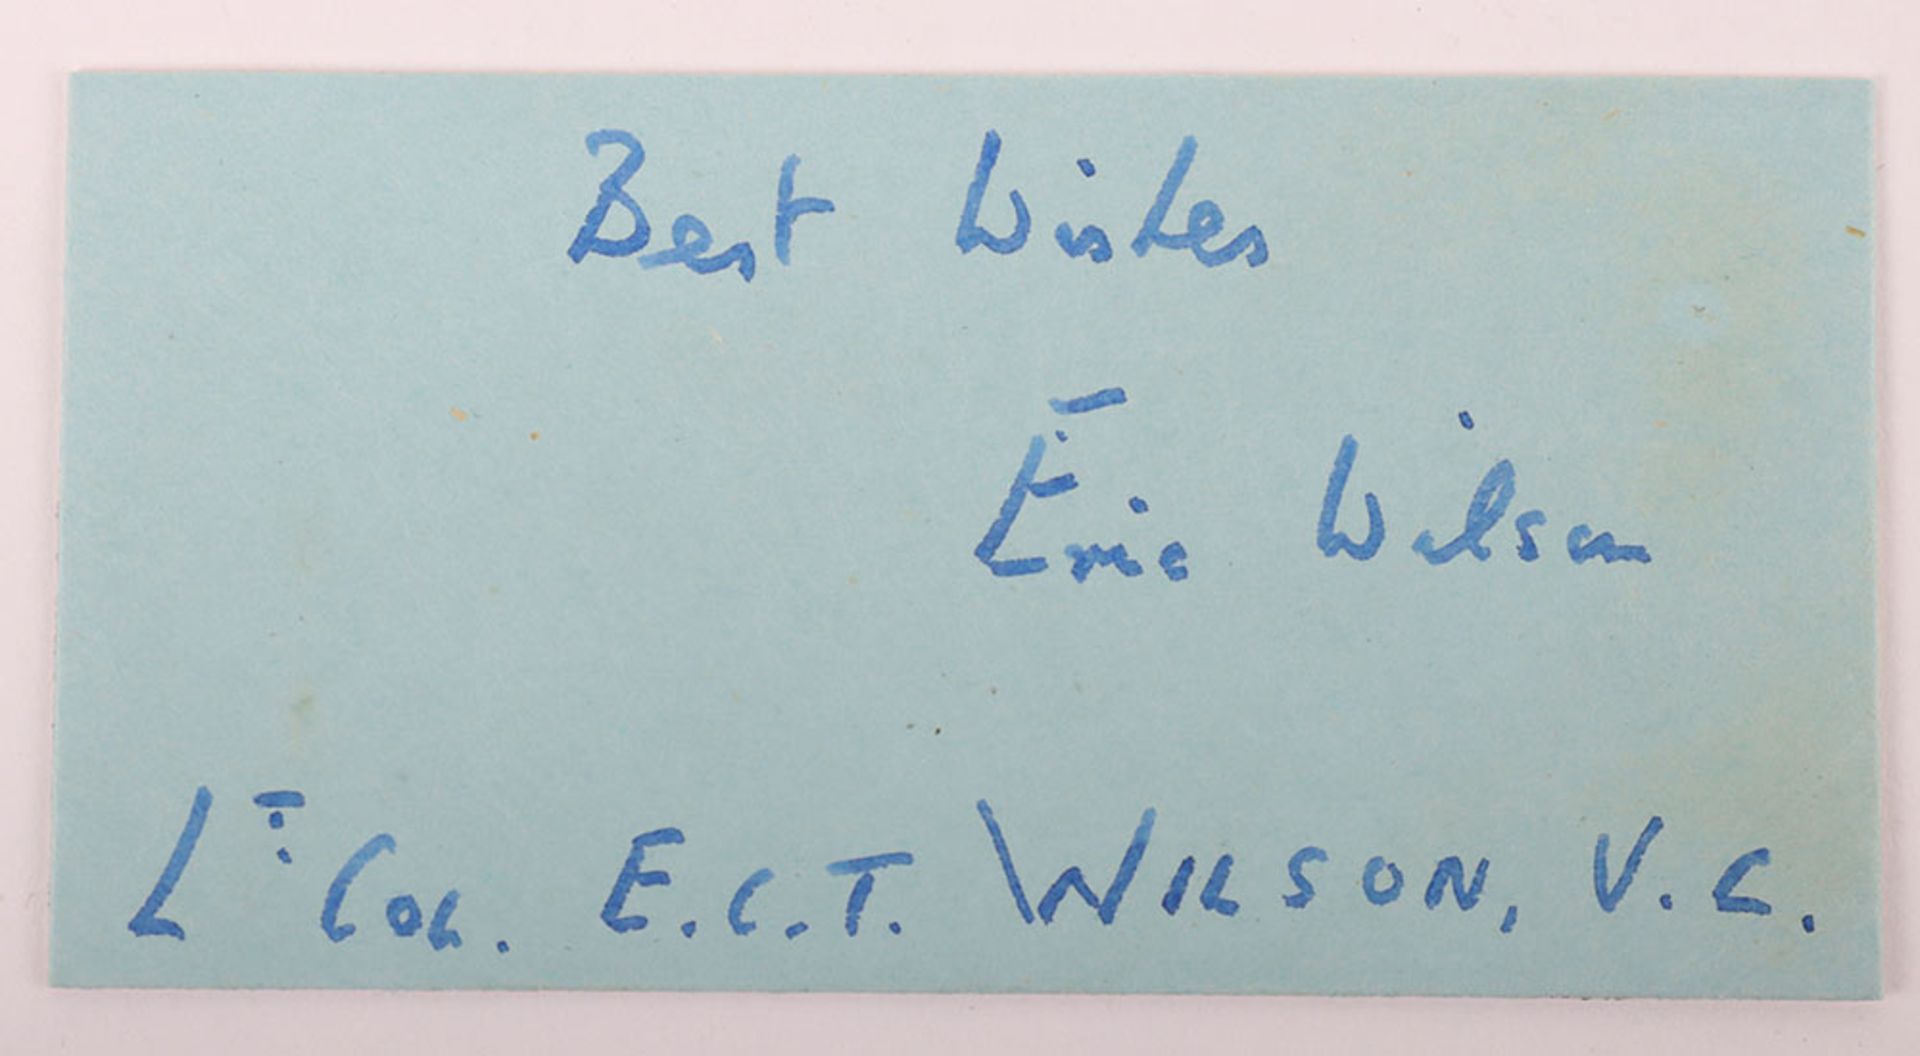 Best Wishes
Eric Wilson
Lt: Col. E.C.T. WILSON, V.C.